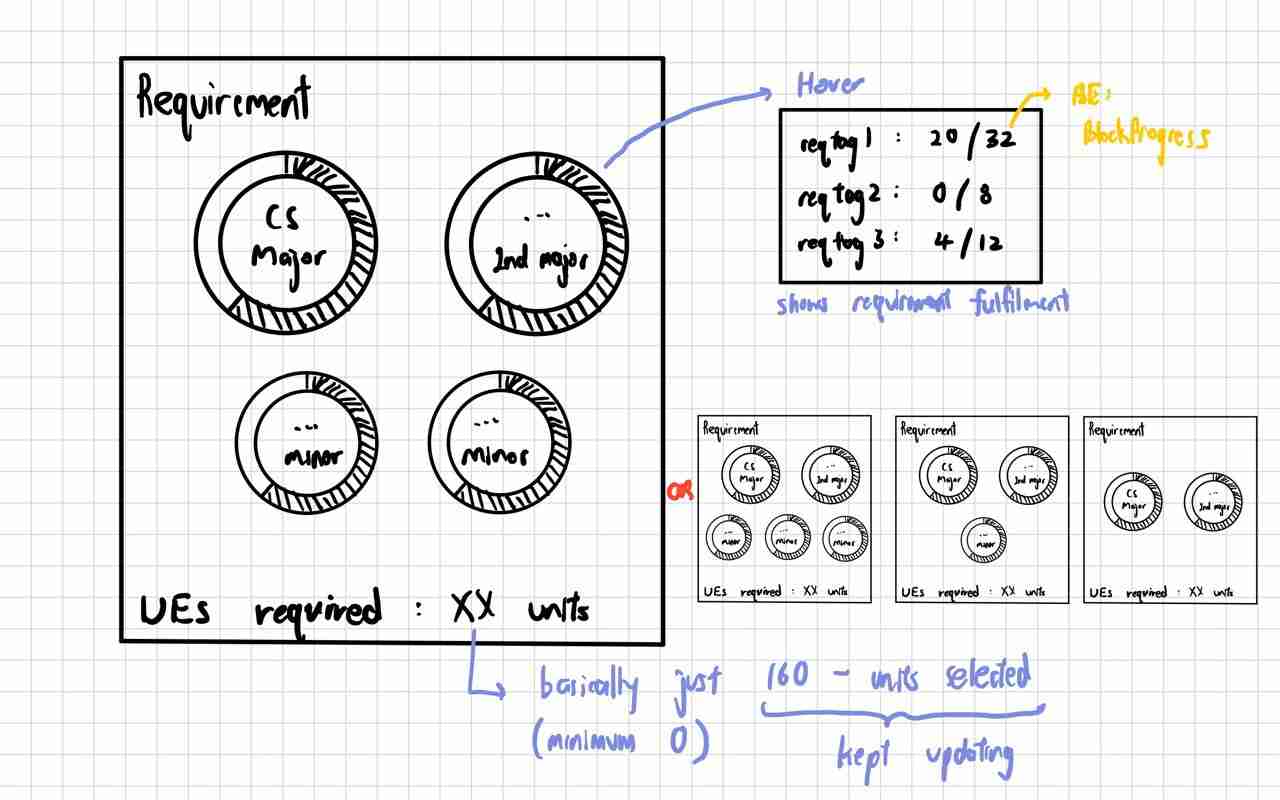 Requirement
CS
Major
...
2nd major
...
minor
...
minor
UEs required : XX units
Hover
req tag 1 : 20 / 32
req tag 2 : 0 / 8
req tag 3 : 4 / 12
shows requirement fulfilment
BE:
BlockProgress
OR
Requirement
CS
Major
...
2nd major
...
minor
...
minor
...
minor
UEs required : XX units
Requirement
CS
Major
...
2nd major
...
minor
UEs required : XX units
Requirement
CS
Major
...
2nd major
UEs required : XX units
basically just 160 - units selected
(minimum 0)
kept updating